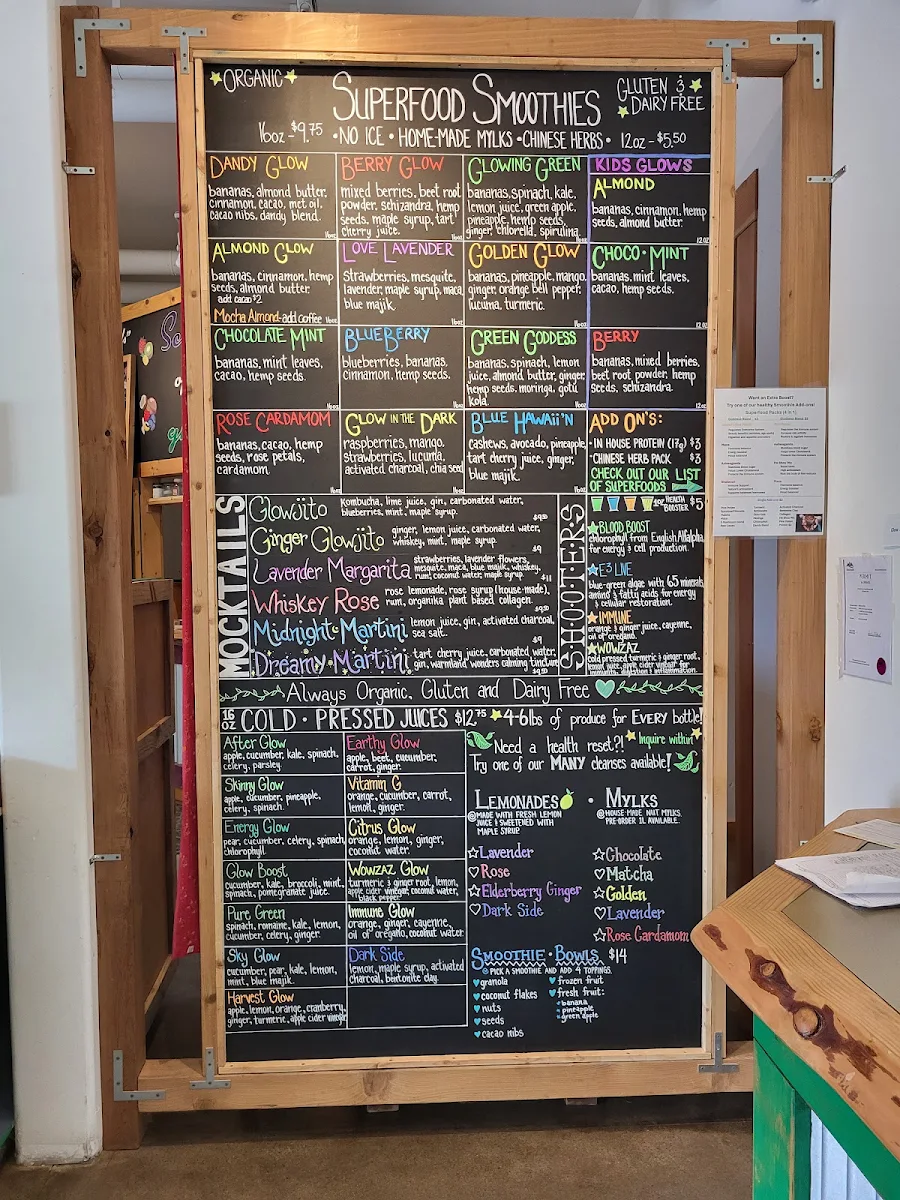 ★ORGANIC★
SUPERFOOD SMOOTHIES
GLUTEN & DAIRY FREE
16oz - $9.75 • NO ICE • HOME-MADE MYLKS • CHINESE HERBS • 12oz - $5.50
DANDY GLOW
bananas, almond butter,
cinnamon, cacao, mct oil,
cacao nibs, dandy blend.
BERRY GLOW
mixed berries, beet root
powder, schizandra, hemp
seeds, maple syrup, tart
cherry juice.
16oz
GLOWING GREEN
bananas, spinach, kale,
lemon juice, green apple,
pineapple, hemp seeds,
ginger, chlorella, spirulina.
KIDS GLOWS
ALMOND
bananas, cinnamon, hemp
seeds, almond butter.
12oz
ALMOND GLOW
bananas, cinnamon, hemp
seeds, almond butter.
add cacao $2
Mocha Almond-add coffee
16oz
LOVE LAVENDER
strawberries, mesquite,
lavender, maple syrup, maca
blue majik.
16oz
GOLDEN GLOW
bananas, pineapple, mango,
ginger, orange bell pepper,
lucuma, turmeric.
16oz
CHOCO•MINT
bananas, mint leaves,
cacao, hemp seeds.
12oz
CHOCOLATE MINT
bananas, mint leaves,
cacao, hemp seeds.
BLUEBERRY
blueberries, bananas,
cinnamon, hemp seeds.
GREEN GODDESS
bananas, spinach, lemon
juice, almond butter, ginger,
hemp seeds, moringa, gotu
kola.
BERRY
bananas, mixed berries,
beet root powder, hemp
seeds, schizandra.
ROSE CARDAMOM
bananas, cacao, hemp
seeds, rose petals,
cardamom.
GLOW IN THE DARK
raspberries, mango,
strawberries, lucuma,
activated charcoal, chia seed
BLUE HAWAII'N
cashews, avocado, pineapple,
tart cherry juice, ginger,
blue majik.
ADD ON'S:
• IN HOUSE PROTEIN (17g) $3
• CHINESE HERB PACK $3
CHECK OUT OUR LIST
OF SUPERFOODS
MOCKTAILS
Glowjito
Kombucha, lime juice, gin, carbonated water,
blueberries, mint, maple syrup.
$9.50
Ginger Glowjito
ginger, lemon juice, carbonated water,
whiskey, mint, maple syrup.
$9
Lavender Margarita
strawberries, lavender flowers,
mesquite, maca, blue majik, whiskey,
rum, coconut water, maple syrup.
$11
Whiskey Rose
rose lemonade, rose syrup (house-made),
rum, organika plant based collagen.
$9.50
Midnight•Martini
lemon juice, gin, activated charcoal,
sea salt.
$9
Dreamy•Martini
tart cherry juice, carbonated water,
gin, warmland wonders calming tincture
$9.50
SHOOTERS
for HEALTH BOOSTER $5
★BLOOD BOOST
chlorophyll from English Alfalfa
for energy & cell production.
★E3 LIVE
blue-green algae with 65 minerals,
amino & fatty acids for energy
& cellular restoration.
★IMMUNE
orange & ginger juice, cayenne,
oil of oregano.
★WOWZAZ
cold pressed turmeric & ginger root,
lemon juice, apple cider vinegar for
Always Organic, Gluten and Dairy Free
16 OZ COLD • PRESSED JUICES $12.75 ★4-6lbs of produce for EVERY bottle!
After Glow
apple, cucumber, kale, spinach,
celery, parsley.
Earthy Glow
apple, beet, cucumber,
carrot, ginger.
Skinny Glow
apple, cucumber, pineapple,
celery, spinach.
Vitamin G
orange, cucumber, carrot,
lemon, ginger.
Energy Glow
pear, cucumber, celery, spinach,
chlorophyll.
Citrus Glow
orange, lemon, ginger,
coconut water.
Glow Boost
cucumber, kale, broccoli, mint,
spinach, pomegranate juice.
Wowzaz Glow
turmeric & ginger root, lemon,
apple cider vinegar, coconut water,
black pepper
Pure Green
spinach, romaine, kale, lemon,
cucumber, celery, ginger.
Immune Glow
orange, ginger, cayenne,
oil of oregano, coconut water
Sky Glow
cucumber, pear, kale, lemon,
mint, blue majik.
Dark Side
lemon, maple syrup, activated
charcoal, bentonite clay.
Harvest Glow
apple, lemon, orange, cranberry,
ginger, turmeric, apple cider vinegar
Need a health reset?! ★Inquire within★
Try one of our MANY cleanses available!
LEMONADES
@MADE WITH FRESH LEMON
JUICE & SWEETENED WITH
MAPLE SYRUP
☆Lavender
♡Rose
☆Elderberry Ginger
♡Dark Side
• MYLKS
@HOUSE MADE NUT MYLKS,
PRE-ORDER 1L AVAILABLE.
☆Chocolate
♡Matcha
☆Golden
♡Lavender
☆Rose Cardamom
SMOOTHIE•BOWLS $14
@PICK A SMOOTHIE AND ADD 4 TOPPINGS.
♥granola
♥coconut flakes
♥nuts
♥seeds
♥cacao nibs
♥frozen fruit
♥fresh fruit:
banana
pineapple
green apple
Want an Extra Boost?
Try one of our healthy Smoothie Add-ons!